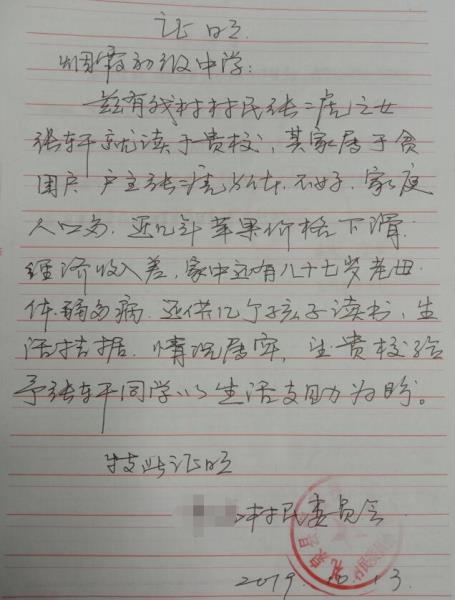 证明
烟霞初级中学：
兹有我村村民张二虎之女
张轩就读于贵校，其家属于贫
困户，户主张二虎身体不好，家庭
人口多，近几年苹果价格下滑
经济收入差，家中还有八十七岁老母
体弱多病，还供几个孩子读书，生
活拮据，情况属实，望贵校给
予张轩同学以生活支助为盼。
特此证明
村民委员会
2019. 10. 13
礼泉县